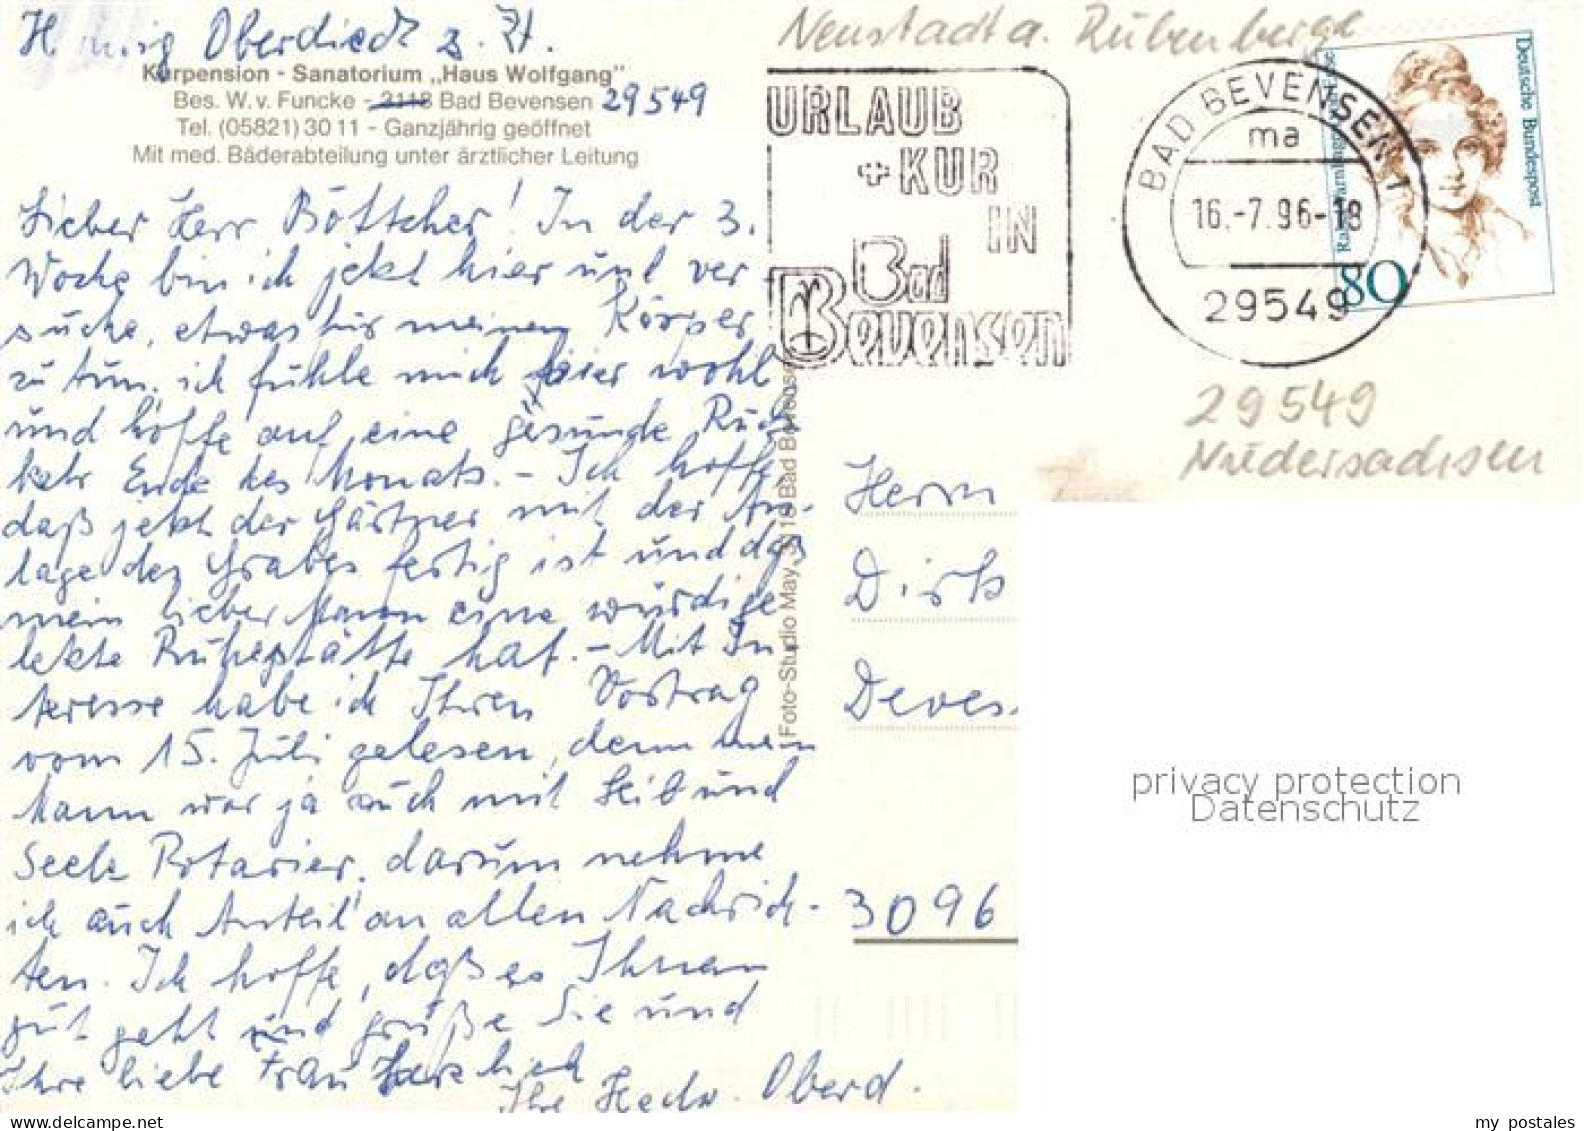 Oberdieck z. Zt.
Kurpension - Sanatorium „Haus Wolfgang"
Bes. W. v. Funcke - 3118 Bad Bevensen 29549
Tel. (05821) 30 11 - Ganzjährig geöffnet
Mit med. Bäderabteilung unter ärztlicher Leitung
Lieber Herr Böttcher! In der 3.
Woche bin ich jetzt hier und ver-
suche, etwas für meinen Körper
zu tun, ich fühle mich hier wohl
und hoffe auf eine gesunde Rück-
kehr Ende des Monats. - Ich hoffe
daß jetzt der Gärtner mit der An-
lage des Grabes fertig ist und daß
mein lieber Mann eine würdige
letzte Ruhestätte hat. - Mit In-
teresse habe ich Ihren Vortrag
vom 15. Juli gelesen, denn mein
Mann war ja auch mit Leib und
Seele Rotarier, darum nehme
ich auch Anteil an allen Nachrich-
ten. Ich hoffe, daß es Ihnen
gut geht und grüße Sie und
Ihre liebe Frau herzlich
Ihre Oberd.
Foto-Studio May, 3118 Bad Bevensen
Neustadt a. Rübenberge
URLAUB
+ KUR
IN
Bad
Bevensen
BAD BEVENSEN 1
ma
16.-7.96-18
29549
Deutsche Bundespost
80
29549
Niedersachsen
Herrn
Dirk
3096
privacy protection
Datenschutz
my postales